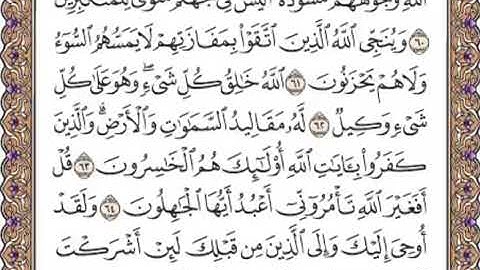 ٱللَّهِ وُجُوهُهُم مُّسْوَدَّةٌ أَلَيْسَ فِى جَهَنَّمَ مَثْوًى لِّلْمُتَكَبِّرِينَ
٦٠ وَيُنَجِّى ٱللَّهُ ٱلَّذِينَ ٱتَّقَوْا۟ بِمَفَازَتِهِمْ لَا يَمَسُّهُمُ ٱلسُّوٓءُ
وَلَا هُمْ يَحْزَنُونَ ٦١ ٱللَّهُ خَـٰلِقُ كُلِّ شَىْءٍ ۖ وَهُوَ عَلَىٰ كُلِّ
شَىْءٍ وَكِيلٌ ٦٢ لَّهُۥ مَقَالِيدُ ٱلسَّمَـٰوَٰتِ وَٱلْأَرْضِ ۗ وَٱلَّذِينَ
كَفَرُوا۟ بِـَٔايَـٰتِ ٱللَّهِ أُو۟لَـٰٓئِكَ هُمُ ٱلْخَـٰسِرُونَ ٦٣ قُلْ
أَفَغَيْرَ ٱللَّهِ تَأْمُرُوٓنِّىٓ أَعْبُدُ أَيُّهَا ٱلْجَـٰهِلُونَ ٦٤ وَلَقَدْ
أُوحِىَ إِلَيْكَ وَإِلَى ٱلَّذِينَ مِن قَبْلِكَ لَئِنْ أَشْرَكْتَ